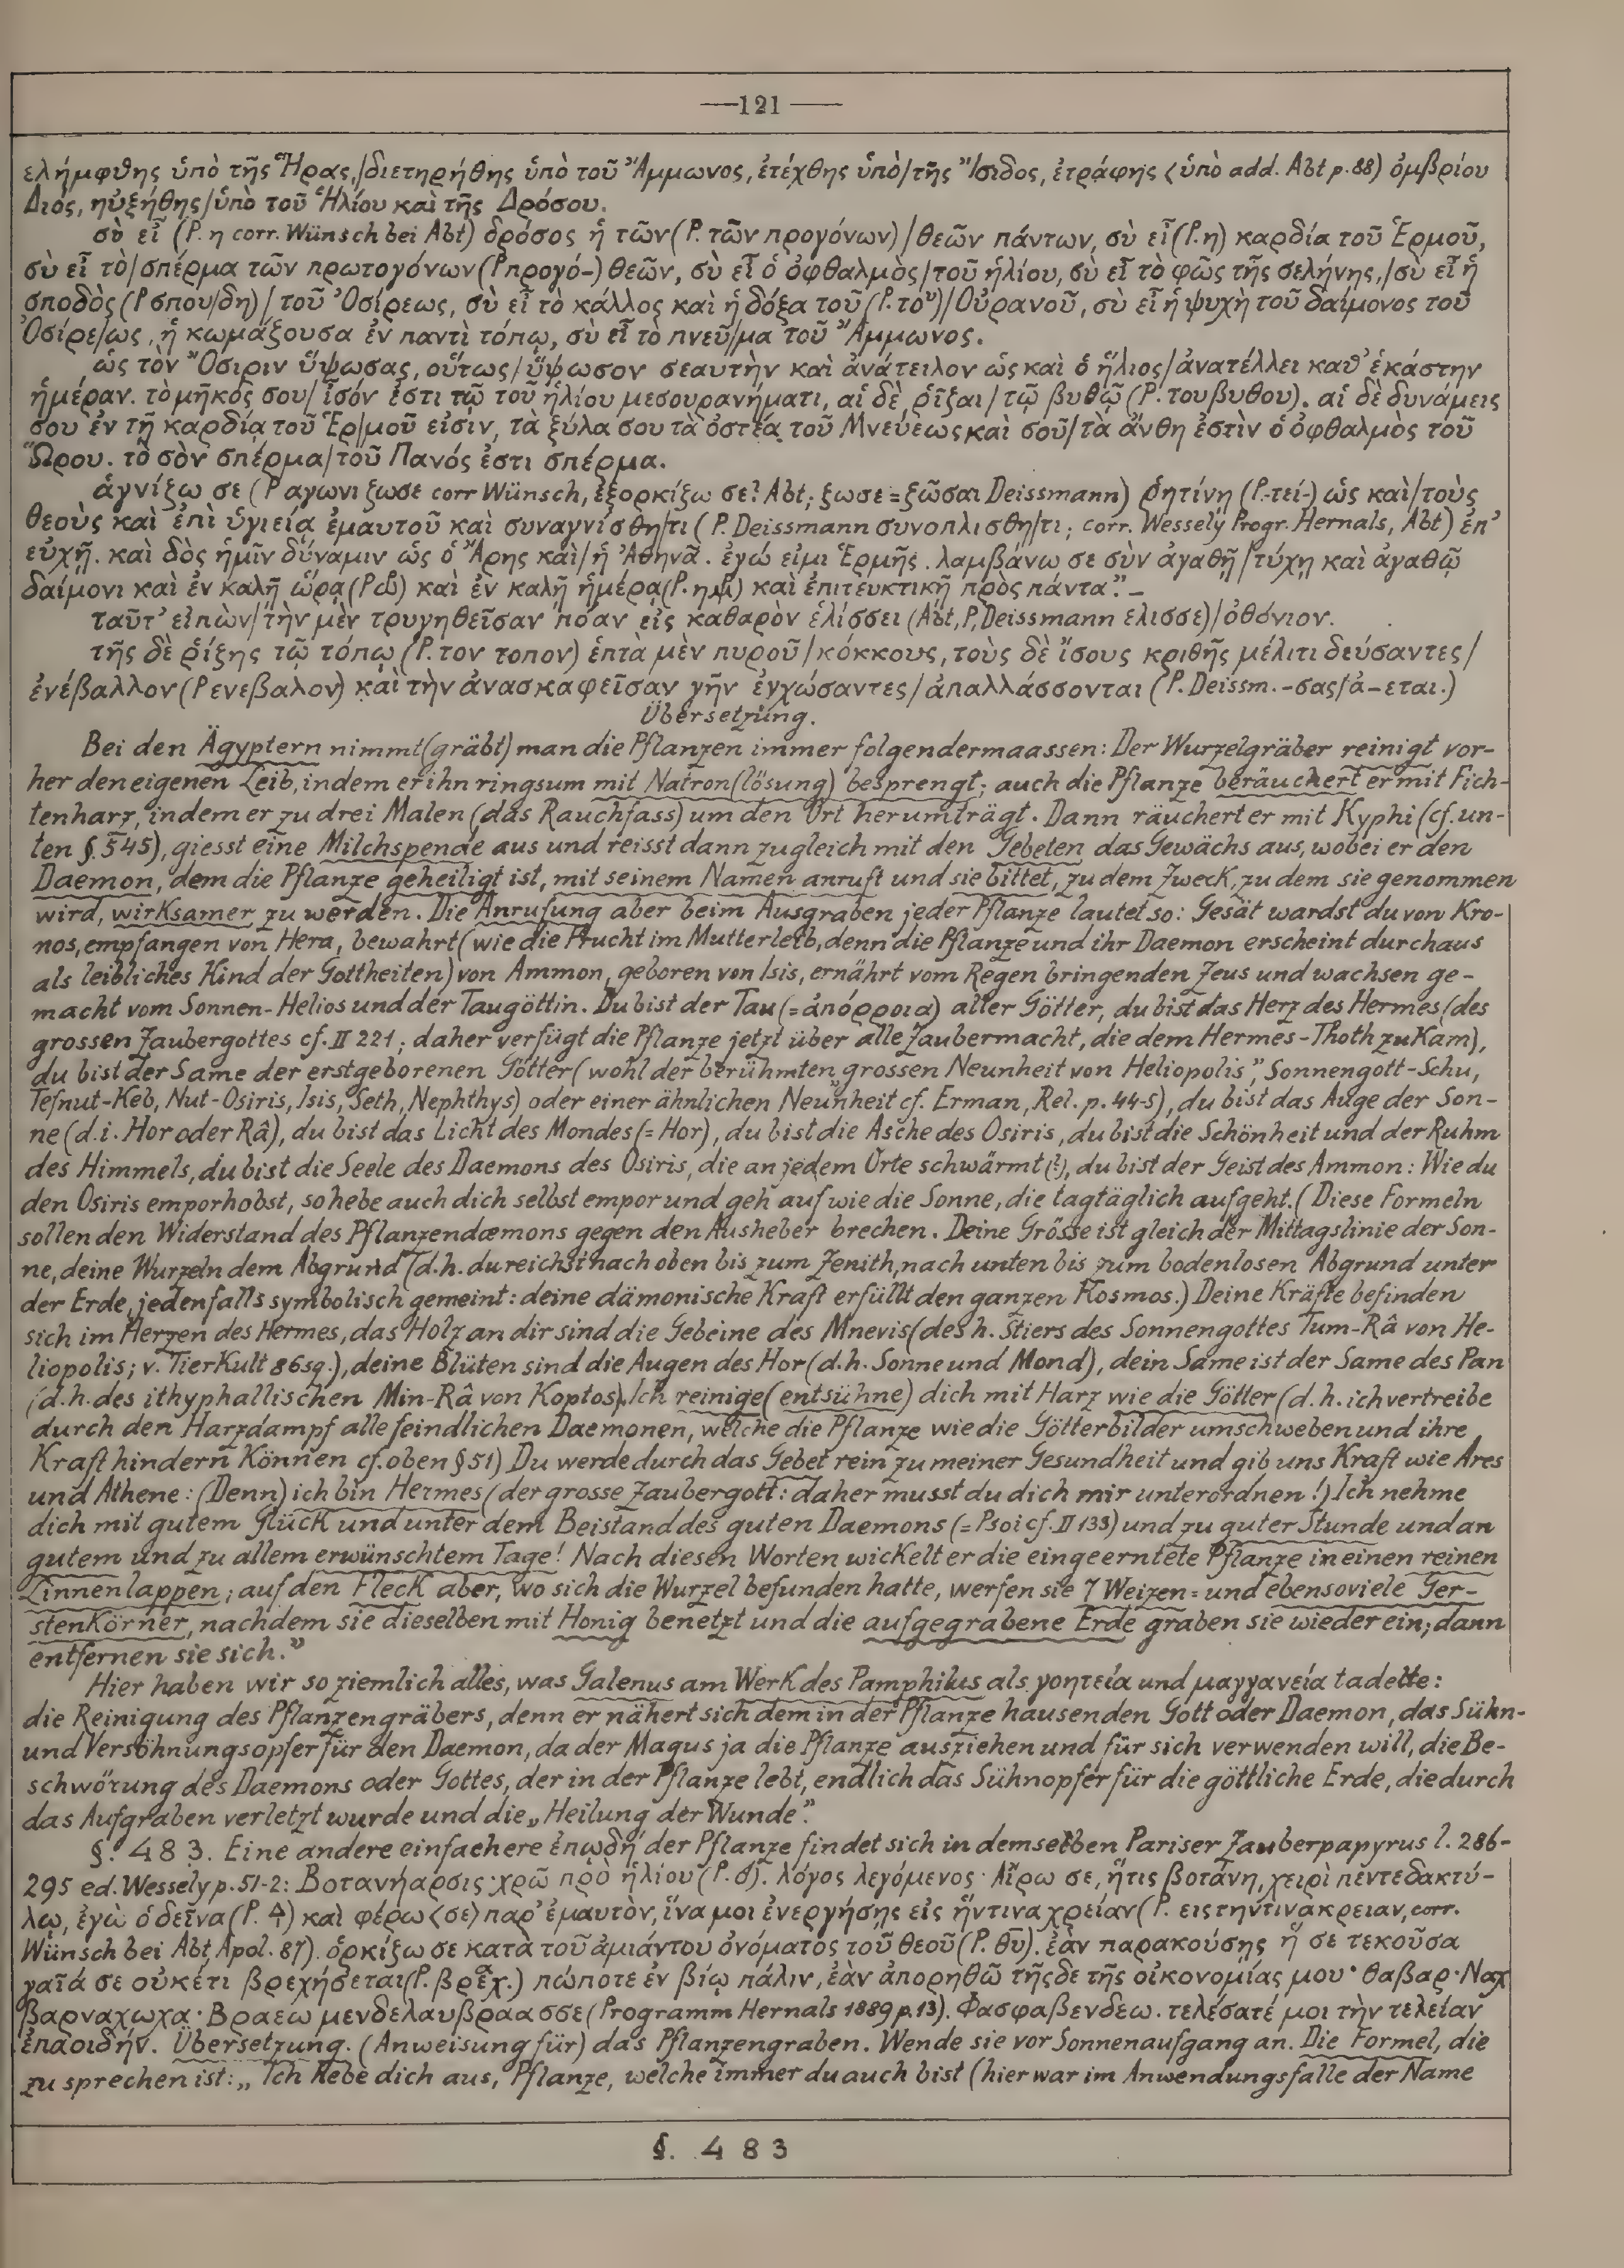 —121—
ελήμφθης ὑπὸ τῆς Ἥρας,/διετηρήθης ὑπὸ τοῦ Ἄμμωνος, ἐτέχθης ὑπὸ/τῆς Ἴσιδος, ἐτράφης <ὑπὸ add. Abt p. 88) ὀμβρίου
Διός, ηὐξήθης/ὑπὸ τοῦ Ἡλίου καὶ τῆς Δρόσου.
σὺ εἶ (P. η corr. Wünsch bei Abt) δρόσος ἡ τῶν (P. τῶν προγόνων)/θεῶν πάντων, σὺ εἶ (P. η) καρδία τοῦ Ἑρμοῦ,
σὺ εἶ τὸ/σπέρμα τῶν πρωτογόνων (P προγό-) θεῶν, σὺ εἶ ὁ ὀφθαλμὸς/τοῦ ἡλίου, σὺ εἶ τὸ φῶς τῆς σελήνης,/σὺ εἶ ἡ
σποδὸς (P σπου/δη)/τοῦ Ὀσίρεως, σὺ εἶ τὸ κάλλος καὶ ἡ δόξα τοῦ (P. το^υ)/Οὐρανοῦ, σὺ εἶ ἡ ψυχὴ τοῦ δαίμονος τοῦ
Ὀσίρε/ως, ἡ κωμάζουσα ἐν παντὶ τόπῳ, σὺ εἶ τὸ πνεῦ/μα τοῦ Ἄμμωνος.
ὡς τὸν Ὄσιριν ὕψωσας, οὕτως/ὕψωσον σεαυτὴν καὶ ἀνάτειλον ὡς καὶ ὁ ἥλιος/ἀνατέλλει καθ' ἑκάστην
ἡμέραν. τὸ μῆκός σου/ἶσόν ἐστι τῷ τοῦ ἡλίου μεσουρανήματι, αἱ δὲ ῥῖζαι/τῷ βυθῷ (P. του βυθου). αἱ δὲ δυνάμεις
σου ἐν τῇ καρδίᾳ τοῦ Ἑρ/μοῦ εἰσιν, τὰ ξύλα σου τὰ ὀστέα τοῦ Μνεύεως καὶ σοῦ/τὰ ἄνθη ἐστὶν ὁ ὀφθαλμὸς τοῦ
Ὥρου. τὸ σὸν σπέρμα/τοῦ Πανός ἐστι σπέρμα.
ἁγνίζω σε (P αγωνιζωσε corr Wünsch, ἐξορκίζω σε? Abt; ζωσε = ζῶσαι Deissmann) ῥητίνῃ (P. -τεί-) ὡς καὶ/τοὺς
θεοὺς καὶ ἐπὶ ὑγιείᾳ ἐμαυτοῦ καὶ συναγνίσθη/τι (P. Deissmann συνοπλισθη/τι; corr. Wessely Progr. Hernals, Abt) ἐπ'
εὐχῇ. καὶ δὸς ἡμῖν δύναμιν ὡς ὁ Ἄρης καὶ/ἡ Ἀθηνᾶ. ἐγώ εἰμι Ἑρμῆς. λαμβάνω σε σὺν ἀγαθῇ/τύχῃ καὶ ἀγαθῷ
δαίμονι καὶ ἐν καλῇ ὥρᾳ καὶ ἐν καλῇ ἡμέρᾳ καὶ ἐπιτευκτικῇ πρὸς πάντα". –
ταῦτ' εἰπὼν/τὴν μὲν τρυγηθεῖσαν πόαν εἰς καθαρὸν ἑλίσσει (Abt, P, Deissmann ελισσε)/ὀθόνιον.
τῆς δὲ ῥίζης τῷ τόπῳ (P. τον τοπον) ἑπτὰ μὲν πυροῦ/κόκκους, τοὺς δὲ ἴσους κριθῆς μέλιτι δεύσαντες/
ἐνέβαλλον (P ενεβαλον) καὶ τὴν ἀνασκαφεῖσαν γῆν ἐγχώσαντες/ἀπαλλάσσονται (P. Deissm. -σας/ἀ-εται.)
Übersetzung.
Bei den Ägyptern nimmt (gräbt) man die Pflanzen immer folgendermaassen: Der Wurzelgräber reinigt vor-
her den eigenen Leib, indem er ihn ringsum mit Natron(lösung) besprengt; auch die Pflanze beräuchert er mit Fich-
tenharz, indem er zu drei Malen (das Rauchfass) um den Ort herumträgt. Dann räuchert er mit Kyphi (cf. un-
ten §. 545), giesst eine Milchspende aus und reisst dann zugleich mit den Gebeten das Gewächs aus, wobei er den
Daemon, dem die Pflanze geheiligt ist, mit seinem Namen anruft und sie bittet, zu dem Zweck, zu dem sie genommen
wird, wirksamer zu werden. Die Anrufung aber beim Ausgraben jeder Pflanze lautet so: Gesät wardst du von Kro-
nos, empfangen von Hera, bewahrt (wie die Frucht im Mutterleib, denn die Pflanze und ihr Daemon erscheint durchaus
als leibliches Kind der Gottheiten) von Ammon, geboren von Isis, ernährt vom Regen bringenden Zeus und wachsen ge-
macht vom Sonnen-Helios und der Taugöttin. Du bist der Tau (= ἀπόρροια) aller Götter, du bist das Herz des Hermes (des
grossen Zaubergottes cf. II 221; daher verfügt die Pflanze jetzt über alle Zaubermacht, die dem Hermes-Thoth zukam),
du bist der Same der erstgeborenen Götter (wohl der berühmten „grossen Neunheit von Heliopolis", Sonnengott-Schu,
Tefnut-Keb, Nut-Osiris, Isis, Seth, Nephthys) oder einer ähnlichen Neunheit cf. Erman, Rel. p. 44-5), du bist das Auge der Son-
ne (d.i. Hor oder Râ), du bist das Licht des Mondes (= Hor), du bist die Asche des Osiris, du bist die Schönheit und der Ruhm
des Himmels, du bist die Seele des Daemons des Osiris, die an jedem Orte schwärmt (?), du bist der Geist des Ammon: Wie du
den Osiris emporhobst, so hebe auch dich selbst empor und geh auf wie die Sonne, die tagtäglich aufgeht. (Diese Formeln
sollen den Widerstand des Pflanzendæmons gegen den Ausheber brechen. Deine Grösse ist gleich der Mittagslinie der Son-
ne, deine Wurzeln dem Abgrund (d.h. du reichst nach oben bis zum Zenith, nach unten bis zum bodenlosen Abgrund unter
der Erde, jedenfalls symbolisch gemeint: deine dämonische Kraft erfüllt den ganzen Kosmos.) Deine Kräfte befinden
sich im Herzen des Hermes, das Holz an dir sind die Gebeine des Mnevis (des h. Stiers des Sonnengottes Tum-Râ von He-
liopolis; v. Tierkult 86 sq.), deine Blüten sind die Augen des Hor (d.h. Sonne und Mond), dein Same ist der Same des Pan
(d.h. des ithyphallischen Min-Râ von Koptos). Ich reinige (entsühne) dich mit Harz wie die Götter (d.h. ich vertreibe
durch den Harzdampf alle feindlichen Daemonen, welche die Pflanze wie die Götterbilder umschweben und ihre
Kraft hindern können cf. oben § 51) Du werde durch das Gebet rein zu meiner Gesundheit und gib uns Kraft wie Ares
und Athene: (Denn) ich bin Hermes (der grosse Zaubergott: daher musst du dich mir unterordnen!) Ich nehme
dich mit gutem Glück und unter dem Beistand des guten Daemons (= Psoi cf. II 133) und zu guter Stunde und an
gutem und zu allem erwünschtem Tage! Nach diesen Worten wickelt er die eingeerntete Pflanze in einen reinen
Linnenlappen; auf den Fleck aber, wo sich die Wurzel befunden hatte, werfen sie 7 Weizen- und ebensoviele Ger-
stenkörner, nachdem sie dieselben mit Honig benetzt und die aufgegrabene Erde graben sie wieder ein; dann
entfernen sie sich."
Hier haben wir so ziemlich alles, was Galenus am Werk des Pamphilus als γοητεία und μαγγανεία tadelte:
die Reinigung des Pflanzengräbers, denn er nähert sich dem in der Pflanze hausenden Gott oder Daemon, das Sühn-
und Versöhnungsopfer für den Daemon, da der Magus ja die Pflanze ausziehen und für sich verwenden will, die Be-
schwörung des Daemons oder Gottes, der in der Pflanze lebt, endlich das Sühnopfer für die göttliche Erde, die durch
das Aufgraben verletzt wurde und die „Heilung der Wunde".
§. 483. Eine andere einfachere ἐπῳδή der Pflanze findet sich in demselben Pariser Zauberpapyrus l. 286-
295 ed. Wessely p. 51-2: Βοτανήαρσις· χρῶ πρὸ ἡλίου. λόγος λεγόμενος· Αἴρω σε, ἥτις βοτάνη, χειρὶ πεντεδακτύ-
λῳ, ἐγὼ ὁ δεῖνα καὶ φέρω <σε> παρ' ἐμαυτὸν, ἵνα μοι ἐνεργήσῃς εἰς ἥντινα χρείαν (P. εις τηντινα κρειαν, corr.
Wünsch bei Abt, Apol. 87). ὁρκίζω σε κατὰ τοῦ ἀμιάντου ὀνόματος τοῦ θεοῦ (P. θῦ). ἐὰν παρακούσῃς ἥ σε τεκοῦσα
γαῖά σε οὐκέτι βρεχήσεται (P. βρεχ.) πώποτε ἐν βίῳ πάλιν, ἐὰν ἀπορηθῶ τῆςδε τῆς οἰκονομίας μου· θαβαρ· Ναχ
βαρναχωχα· Βραεώ μενδελαυβραασσε (Programm Hernals 1889 p. 13). Φασφαβενδεω. τελέσατέ μοι τὴν τελείαν
ἐπαοιδήν. Übersetzung. (Anweisung für) das Pflanzengraben. Wende sie vor Sonnenaufgang an. Die Formel, die
zu sprechen ist: „Ich hebe dich aus, Pflanze, welche immer du auch bist (hier war im Anwendungsfalle der Name
§. 483